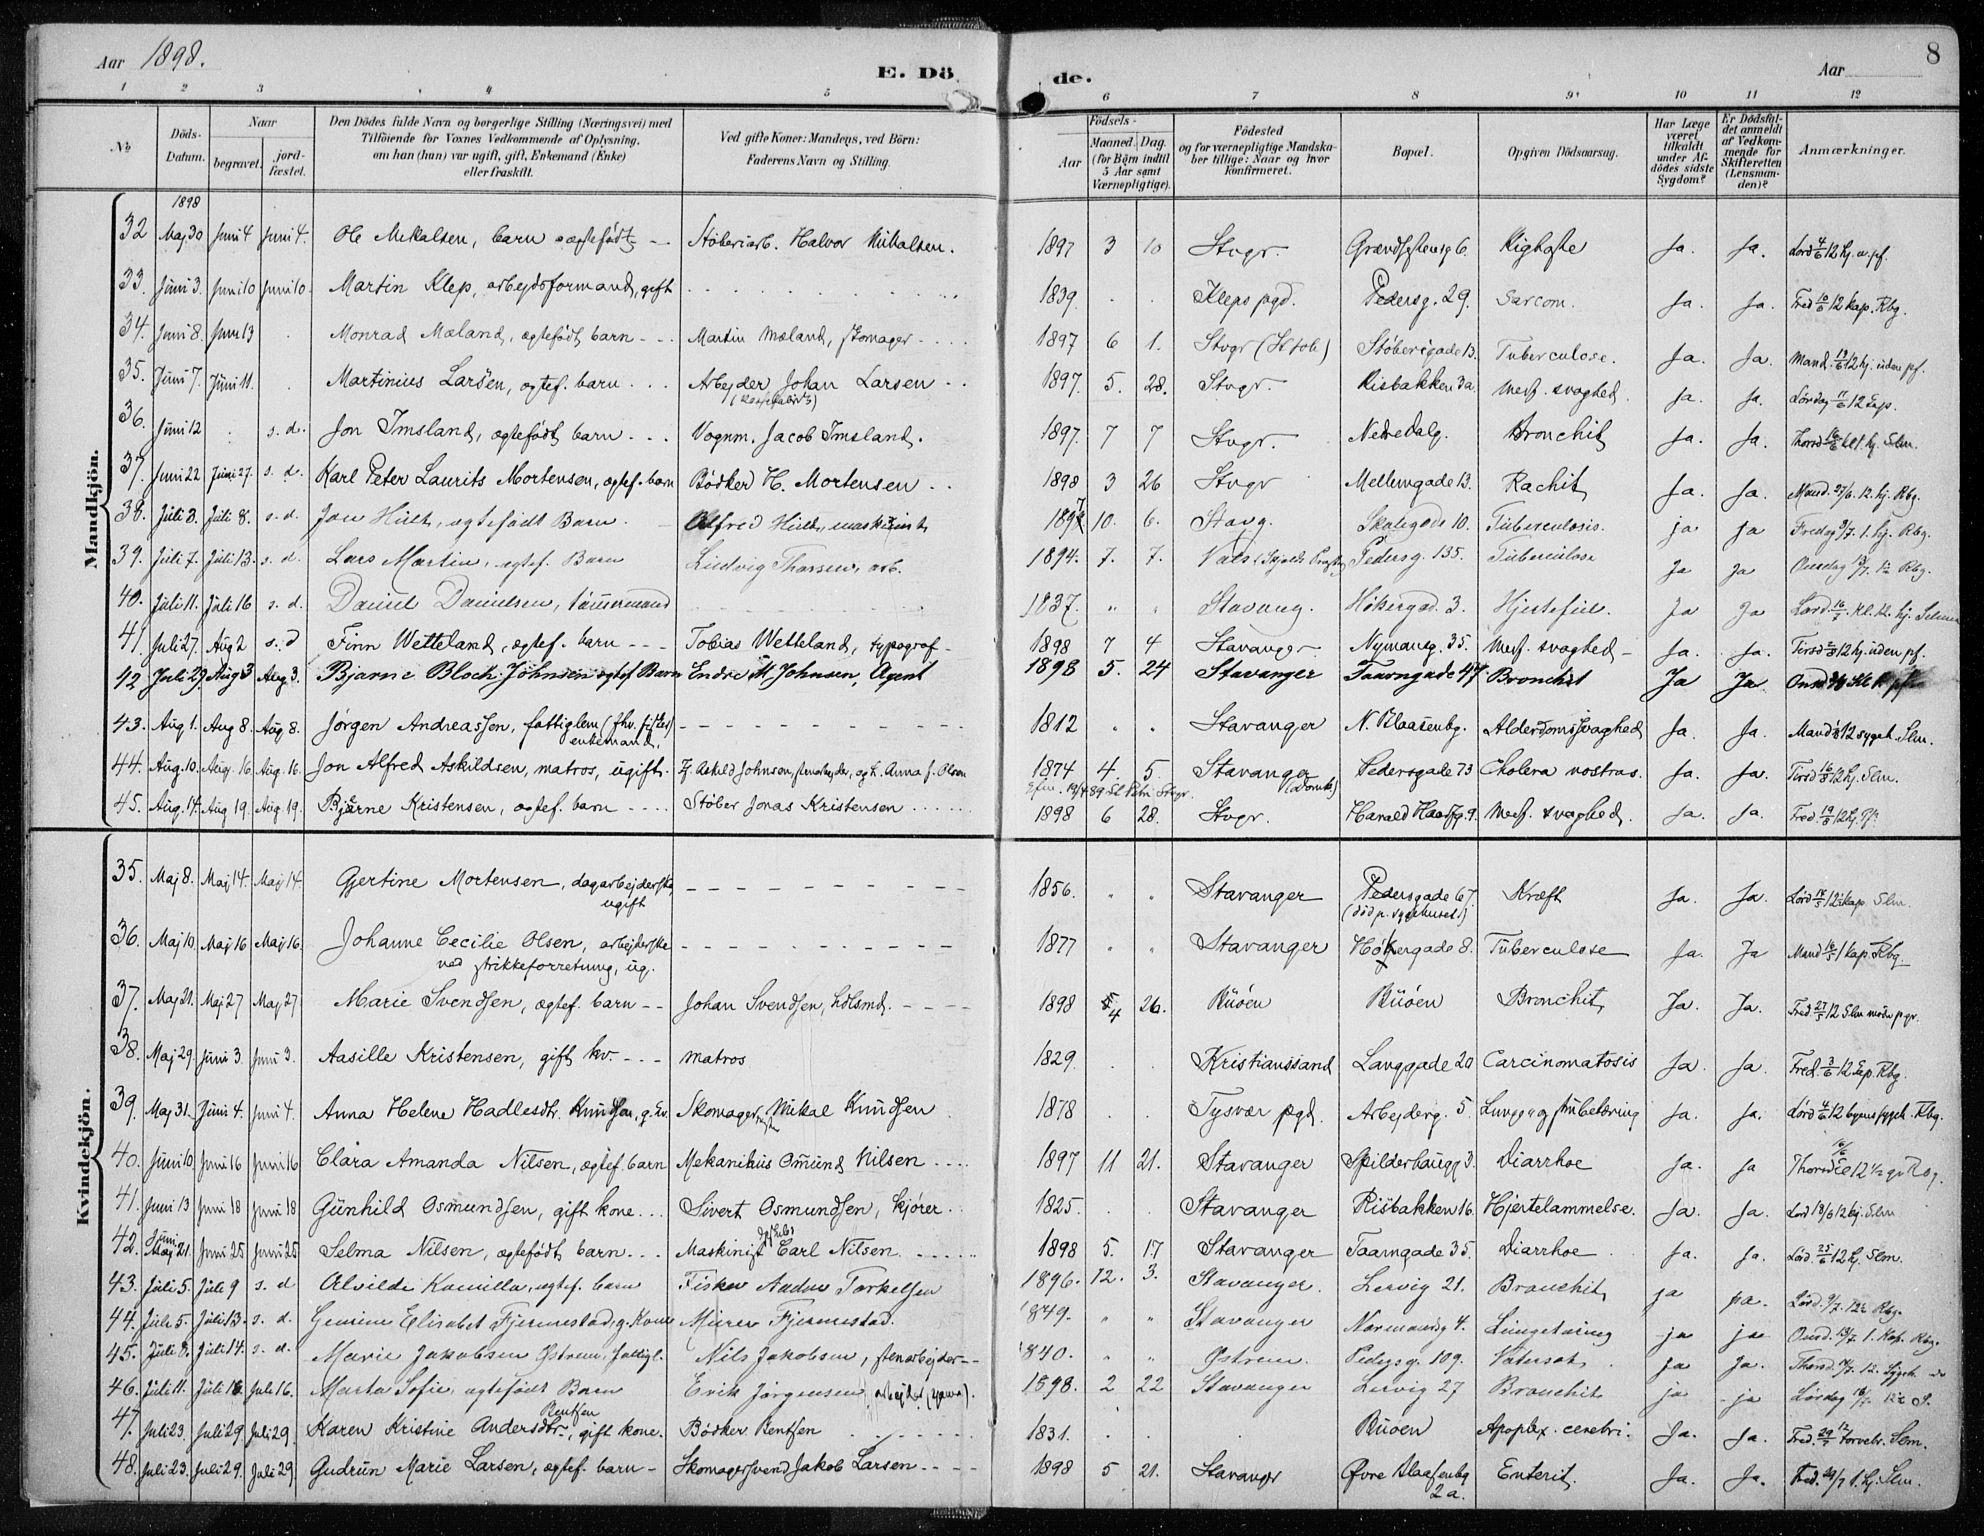 Aar 1898.
E. Dö
de.
Aar
8
1 2 3 4 5 6 7 8 9 10 11 12
No
Döds-Datum.
Naar
begravet.
jord-fæstet.
Den Dödes fulde Navn og borgerlige Stilling (Næringsvei) med
Tilföiende for Voxnes Vedkommende af Oplysning.
om han (hun) var ugift, gift, Enkemand (Enke)
eller fraskilt.
Ved gifte Koner: Mandens, ved Börn:
Faderens Navn og Stilling.
Födsels-
Aar
Maaned. Dag.
(for Börn indtil
5 Aar samt
Værnepligtige).
Födested
og for værnepligtige Mandska-
ber tillige: Naar og hvor
konfirmeret.
Bopæl.
Opgiven Dödsaarsag.
Har Læge
været
tilkaldt
under Af-
dödes sidste
Sygdom?
Er Dödsfal-
det anmeldt
af Vedkom-
mende for
Skifteretten
(Lensman-
den)?
Anmærkninger.
Mandkjön.
1898
32 Maj 30 Juni 4 Juni 4. Ole Mikalsen, barn ægtefødt Støberiarb. Halvor Mikalsen. 1897 3 10 Stvgr. 6. Kighoste Ja. Ja.
33. Juni 3. Juni 10 Juni 10. Martin Klep, arbejdsformand, gift 1839. Klep pgd. Pedersg. 29. Sarcom. Ja. Ja. Fred 10/6 12 kap. Rbg.
34. Juni 8. Juni 13 Monrad Mæland, ægtefødt barn Martin Mæland, skomager 1897 6 1. Stvgr Støberigade 13. Tuberculose. Ja. Ja. Mand. 13/6 12 hj. uden pf.
35. Juni 7. Juni 11. Martinius Larsen, ægtef. barn Arbejder Johan Larsen 1897. 5. 28. Stvgr. Risbakken 3a. Medf. svaghed. Ja. Ja. Lørdag 11/6 12 kap.
36. Juni 12 s. d. Jon Imsland, ægtefødt barn Vognm. Jacob Imsland. 1897. 7 7 Stvgr. Nedredalg. Bronchit Ja. Ja.
37. Juni 22 Juni 27. s. d. Karl Peter Laurits Mortensen, ægtef. barn Bødker H. Mortensen 1898 3 26 Stvgr Mellemgade 13. Rachit Ja. Ja. Mand. 27/6. 12. hj. Rbg.
38. Juli 3. Juli 8. s. d. Jon Hult, ægtefødt Barn Alfred Hult, maskinist 1897 10. 6. Stavg. 10. Tuberculosis. ja ja
39. Juli 7. Juli 13. s. d. Lars Martin, ægtef. Barn Ludvig Thorsen, arb. 1894. 7. 7. Pedersg. 135. Tuberculose Ja Ja Onsdag 13/7. 12 Rbg.
40. Juli 11. Juli 16 s. d. Daniel Danielsen, tømmermand 1837. " " Stavang. Høkergad. 3. Hjertefeil. Ja Ja
41. Juli 27. Aug 2 s. d Finn Wetteland, ægtef. barn Tobias Wetteland, typograf 1898 7 4 Stavanger Nymansg. 35. Medf. svaghed Ja. Ja. Tirsd 2/8 12 hj. uden pf.
42 Juli 29. Aug 3 Aug 3. Bjarne Bloch Johnsen ægtef Barn Endre M Johnsen, Agent 1898 5. 24 Stavanger Taarngade 47 Bronchit Ja Ja
43. Aug 1. Aug 8. Aug 8. Jørgen Andreassen, fattiglem (fhv. fisker)
enkemand. 1812 " " Stavanger N. Blaasenbg. Alderdomssvaghed Ja. Ja. Mand 8/8 12 sygeh. Slm.
44. Aug. 10. Aug. 16 Aug. 16. Jon Alfred Askildsen, matros, ugift. 1874 4. 5. Stavanger
(Domk) Pedersgade 73 Cholera nostras. Ja. Ja. Tirsd 16/8 12 hj. Slm.
45. Aug. 14. Aug 19. Aug 19. Bjarne Kristensen, ægtef. barn Støber Jonas Kristensen 1898 6 28. Stvgr. 9. Medf. svaghed. Ja. Ja.
Kvindekjön.
35. Maj 8. Maj 14. Maj 14. Gjertine Mortensen, dagarbejderske
ugift 1856. " " Stavanger Pedersgade 67.
(død p. sygehuset) Kræft Ja. Ja. Lörd 14/5 12 kap. Slm.
36. Maj 10. Maj 16 Maj 16. Johanne Cecilie Olsen, arbejderske
ved strikkeforretning, ug. 1877 " " Stavanger Høkergade 8. Tuberculose Ja. Ja Mand 16/5 1 kap. Rbg.
37. Maj 21. Maj 27 Maj 27 Marie Svendsen, ægtef. barn Johan Svendsen, losmd. 1898 4 26. Buøen Buøen Bronchit Ja. Ja.
38. Maj 29. Juni 3. Juni 3. Aasille Kristensen, gift kv. matros 1829. Kristianssand Langgade 20 Carcinomatosis Ja Ja. Fred. 3/6 12 kap. Rbg.
39. Maj 31. Juni 4. Juni 4. Anna Helene Hadlesdtr. Knudsen, g. kv. Skomager Mikal Knudsen 1878 Tysvær pgd. Arbejderg. 5 Lunge og strubetæring Ja. Ja. Lörd 4/6 12 byens sygeh. Rbg.
40. Juni 10. Juni 16 Juni 16 Clara Amanda Nilsen, ægtef. barn Mekanikus Omund Nilsen 1897 11 21. Stavanger Spilderhaugg 3. Diarrhoe Ja. Ja
41. Juni 13 Juni 18 Juni 18 Gunhild Osmundsen, gift kone Sivert Osmundsen, kjører 1825. Stavanger Risbakken 16. Hjertelammelse. Ja. Ja. Lörd 18/6 12 hj. Slm
42. Juni 21. Juni 25 Juni 25 Selma Nilsen, ægtefødt barn Maskinist Carl Nilsen 1898 5. 17 Stavanger Taarngade 35. Diarrhoe Ja. Ja. Lörd 25/6 12 hj. Slm.
43. Juli 5. Juli 9 s. d Alvilde Kamilla, ægtef. barn Fisker Torkelsen 1896. 12. 3. Stavanger. Lervig 21. Bronchit ja ja. Lörd. 9/7. 12 Rbg.
44. Juli 5. Juli 13. s. d. Gemine Elisabet Fjermestad, g. Kone Murer Fjermestad. 1849. " " Stavanger 4. Lungetæring ja ja Onsd. 13/7. 1. Kap. Rbg.
45. Juli 8. Juli 14. s. d. Marie Jakobsen Østrem, fattigl. Nils Jakobsen, stenarbejder 1840. " " Østrem. Pedersg. 109. Vatersot. ja Ja.
46. Juli 11. Juli 16. Juli 16. Marta Sofie, ægtefødt Barn Erik Jørgensen, arbejder 1898. 2 22 Stavanger Lervig 27 Bronchit ja ja
47. Juli 23. Juli 29. Juli 29. Karen Kristine Andersdtr. Bentsen, gift kone. Bødker Bentsen 1831. Buøen Apoplex. cerebri. Ja. Ja.
48. Juli 23. Juli 29. Juli 29. Gudrun Marie Larsen, ægtef. barn Skomagersvend Jakob Larsen 1898 5 21. Stavanger Øvre Blaasenbg
2 a. Enterit. Ja. Ja. Fred. 29/7 1. hj. Slm.